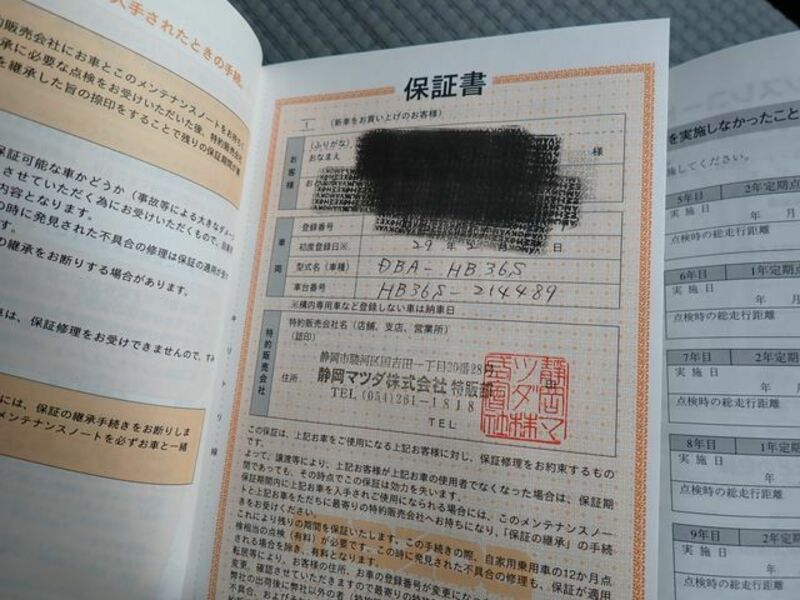 入手されたときの手続
約販売会社にお車とこのメンテナンスノートをお持ち
承に必要な点検をお受けいただいた後、特約販売会社
を継承した旨の捺印をすることで残りの保証期間が
保証可能な車かどうか（事故等による大きなダメー
させていただく為にお受けいただくもので、
内容となります。
の時に発見された不具合の修理は保証の適用が受け
す。
の継承をお断りする場合があります。
車は、保証修理をお受けできませんので、すみ
には、保証の継承手続きをお断りしま
メンテナンスノートを必ずお車と一緒
キリトリ線
保証書
（新車をお買い上げのお客様）
お客様
（ふりがな）
おなまえ
様
車両
登録番号
初度登録日※
29年
日
型式名（車種）
DBA-HB36S
車台番号
HB36S-214489
※構内専用車など登録しない車は納車日
特約販売会社
特約販売会社名（店舗、支店、営業所）
（認印）
住所
静岡市駿河区国吉田一丁目20番28号
静岡マツダ株式会社 特販部
TEL (054)261-1818
TEL
静岡マツダ株式会社
この保証は、上記お車をご使用になる上記お客様に対し、保証修理をお約束するもの
です。
よって、譲渡等により、上記お客様が上記お車の使用者でなくなった場合は、保証期
間であっても、その時点でこの保証は効力を失います。
保証期間内に上記お車を入手されご使用になられる場合には、このメンテナンスノー
トと上記お車をただちに最寄りの特約販売会社へお持ちになり、「保証の継承」の手続
きをお受けください。
これにより残りの期間を保証いたします。この手続きの際、自家用乗用車の12か月点
検相当の点検（有料）が必要です。この時に発見された不具合の修理も、保証が適用
される場合を除き、有料となります。
転居等により、お客様の住所、お車の登録番号が変更になっ
変更、確認させていただきますので最寄りの特約
弊社の出荷後に弊社以外の者（特約
不具合、および
を実施しなかったこと
施してください。
5年目 2年定期点
実施日
年 月
点検時の総走行距離
6年目 1年定期点
実施日
年 月
点検時の総走行距離
7年目 2年定期
実施日
年
点検時の総走行距離
8年目 1年定
実施日
年
点検時の総走行距離
9年目 2年定
実施日